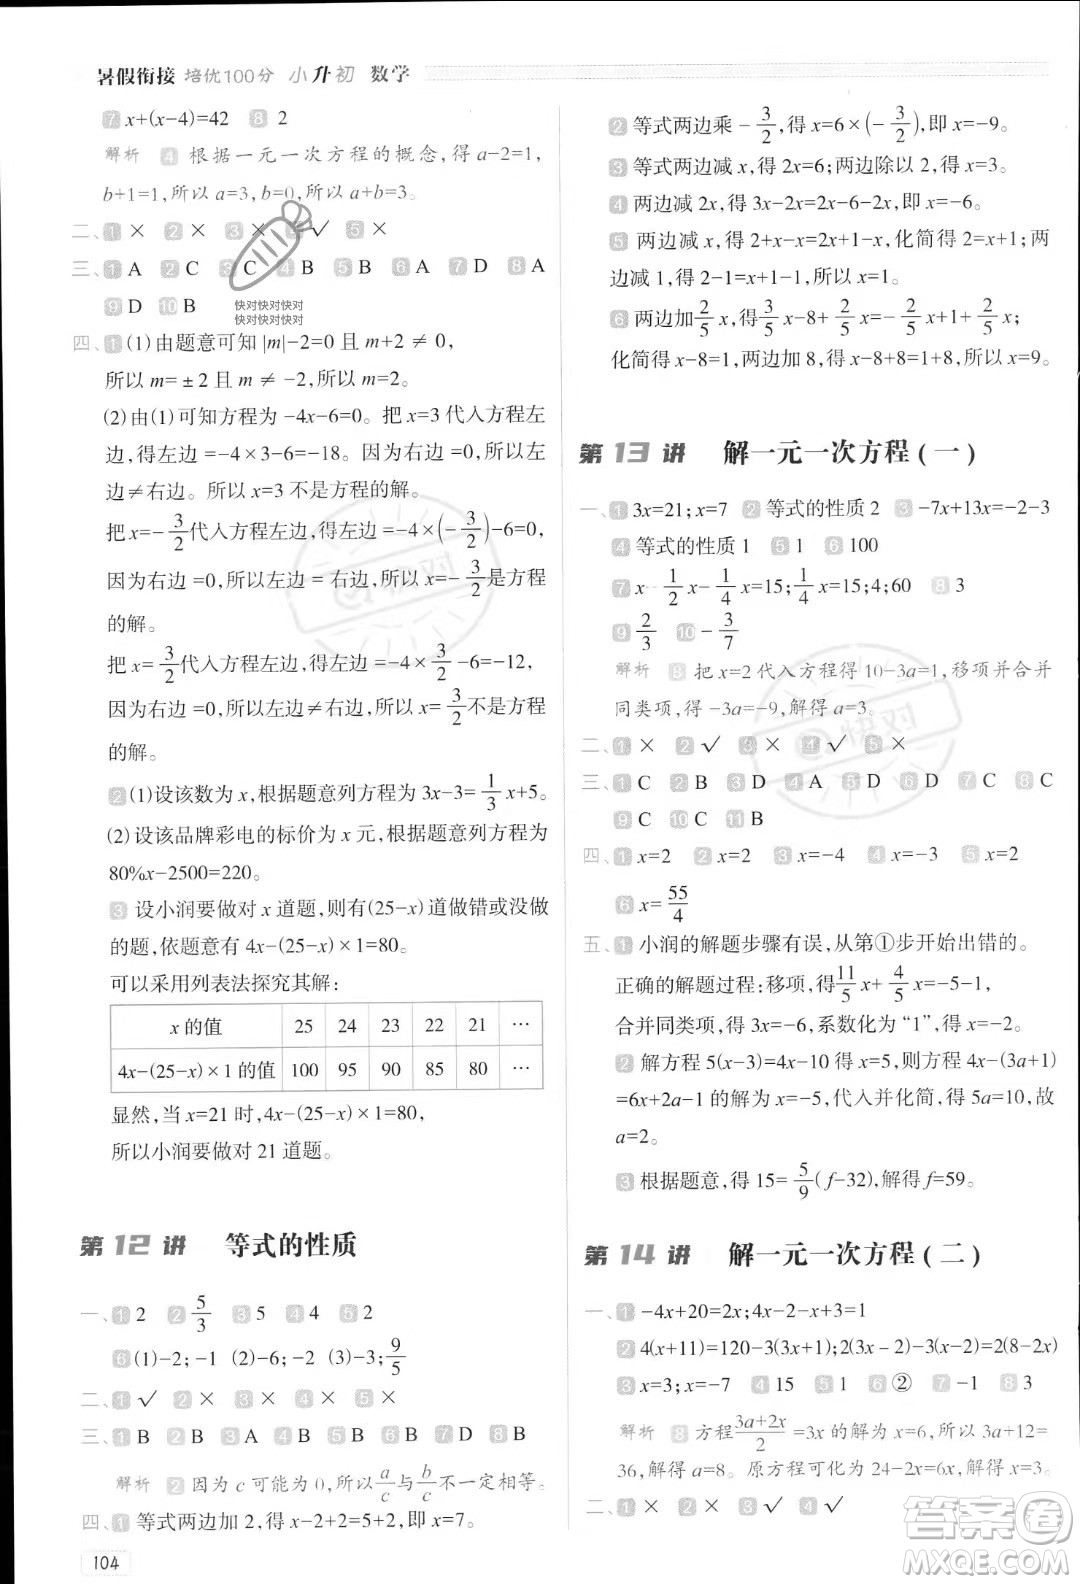 暑假衔接 培优100分 小升初 数学
7 x+(x-4)=42 8 2
解析 4 根据一元一次方程的概念,得 a-2=1,
b+1=1,所以 a=3,b=0,所以 a+b=3。
二、1 × 2 × 3 × 4 √ 5 ×
三、1 A 2 C 3 C 4 B 5 B 6 A 7 D 8 A
9 D 10 B
快对快对快对
快对快对快对
四、1 (1)由题意可知 |m|-2=0 且 m+2 ≠ 0,
所以 m=±2 且 m ≠ -2,所以 m=2。
(2)由(1)可知方程为 -4x-6=0。把 x=3 代入方程左
边,得左边 =-4×3-6=-18。因为右边 =0,所以左
边≠右边。所以 x=3 不是方程的解。
把 x=-3/2代入方程左边,得左边=-4×(-3/2)-6=0,
因为右边 =0,所以左边 = 右边,所以 x=-3/2是方程
的解。
把 x=3/2代入方程左边,得左边=-4×3/2-6=-12,
因为右边=0,所以左边≠右边,所以 x=3/2不是方程
的解。
2 (1)设该数为 x,根据题意列方程为 3x-3=1/3x+5。
(2)设该品牌彩电的标价为 x 元,根据题意列方程为
80%x-2500=220。
3 设小润要做对 x 道题,则有(25-x)道做错或没做
的题,依题意有 4x-(25-x)×1=80。
可以采用列表法探究其解:
x 的值 25 24 23 22 21 …
4x-(25-x)×1 的值 100 95 90 85 80 …
显然,当 x=21 时,4x-(25-x)×1=80,
所以小润要做对 21 道题。
第 12 讲 等式的性质
一、1 2 2 5/3 3 5 4 4 5 2
6 (1)-2;-1 (2)-6;-2 (3)-3;9/5
二、1 √ 2 × 3 × 4 × 5 ×
三、1 B 2 B 3 A 4 B 5 B 6 C 7 D 8 B
解析 2 因为 c 可能为 0,所以a/c与b/c不一定相等。
四、1 等式两边加 2,得 x-2+2=5+2,即 x=7。
104
2 等式两边乘 -3/2,得 x=6×(-3/2),即 x=-9。
3 等式两边减 x,得 2x=6;两边除以 2,得 x=3。
4 两边减 2x,得 3x-2x=2x-6-2x,得 x=-6。
5 两边减 x,得 2+x-x=2x+1-x,化简得 2=x+1,两
边减 1,得 2-1=x+1-1,所以 x=1。
6 两边加2/5x,得3/5x-8+2/5x=1-2/5x+2/5x;
化简得 x-8=1,两边加 8,得 x-8+8=1+8,所以 x=9。
第 13 讲 解一元一次方程(一)
一、1 3x=21;x=7 2 等式的性质 2 3 -7x+13x=-2-3
4 等式的性质 1 5 1 6 100
7 x-1/2x-1/4x=15;1/4x=15;4;60 8 3
9 2/3 10 -3/7
解析 8 把 x=2 代入方程得 10-3a=1,移项并合并
同类项,得 -3a=-9,解得 a=3。
二、1 × 2 √ 3 × 4 √ 5 ×
三、1 C 2 B 3 D 4 A 5 D 6 D 7 C 8 C
9 C 10 C 11 B
四、1 x=2 2 x=2 3 x=-4 4 x=-3 5 x=2
6 x=55/4
五、1 小润的解题步骤有误,从第①步开始出错的。
正确的解题过程:移项,得11/5x+4/5x=-5-1,
合并同类项,得 3x=-6,系数化为“1”,得 x=-2。
2 解方程 5(x-3)=4x-10 得 x=5,则方程 4x-(3a+1)
=6x+2a-1 的解为 x=-5,代入并化简,得 5a=10,故
a=2。
3 根据题意,得 15=5/9(f-32),解得 f=59。
第 14 讲 解一元一次方程(二)
一、1 -4x+20=2x;4x-2-x+3=1
2 4(x+11)=120-3(3x+1);2(3x-2)-3(x-2)=2(8-2x)
3 x=3;x=-7 4 15 5 2 6 ② 7 -1 8 3
解析 8 方程(3a+2x)/2=3x的解为 x=6,所以 3a+12=
36,解得 a=8。原方程可化为 24-2x=6x,解得 x=3。
二、1 × 2 × 3 √ 4 √
答案圈
MXQE.COM